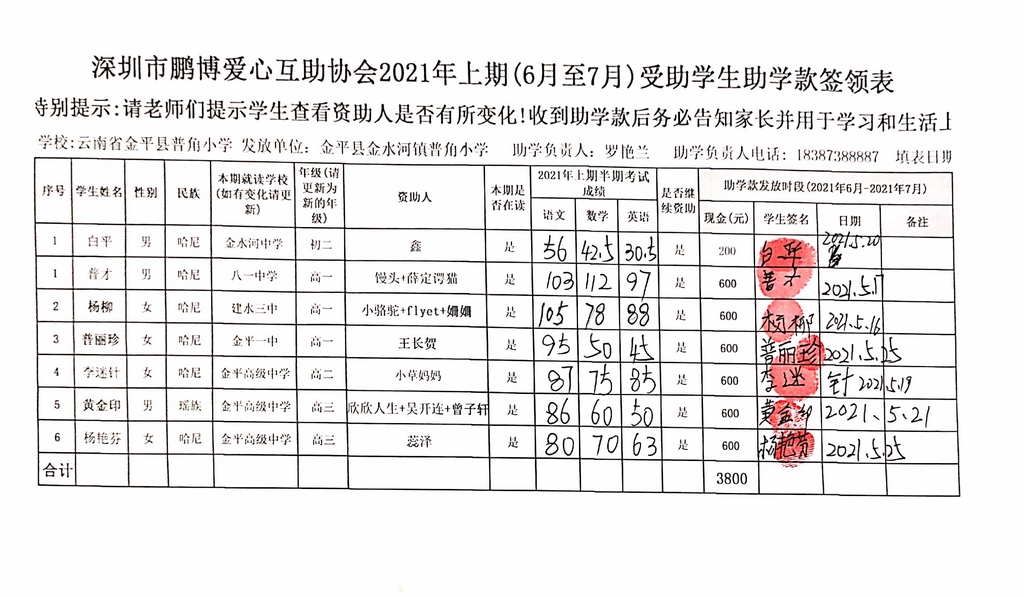 深圳市鹏博爱心互助协会2021年上期(6月至7月)受助学生助学款签领表
特别提示:请老师们提示学生查看资助人是否有所变化!收到助学款后务必告知家长并用于学习和生活上
学校:云南省金平县普角小学 发放单位: 金平县金水河镇普角小学 助学负责人: 罗艳兰 助学负责人电话: 18387388887 填表日期
序号 学生姓名 性别 民族 本期就读学校(如有变化请更新) 年级(请更新为新的年级) 资助人 本期是否在读 2021年上期半期考试成绩 是否继续资助 助学款发放时段(2021年6月-2021年7月)
语文 数学 英语 现金(元) 学生签名 日期 备注
1 白平 男 哈尼 金水河中学 初二 鑫 是 56 42.5 30.5 是 200 白平 2021.5.20
1 普才 男 哈尼 八一中学 高一 馒头+薛定谔猫 是 103 112 97 是 600 普才 2021.5.17
2 杨柳 女 哈尼 建水三中 高一 小骆驼+flyet+姗姗 是 105 78 88 是 600 杨柳 2021.5.16
3 普丽珍 女 哈尼 金平一中 高一 王长贺 是 95 50 45 是 600 普丽珍 2021.5.25
4 李迷针 女 哈尼 金平高级中学 高二 小草妈妈 是 87 75 85 是 600 李迷针 2021.5.19
5 黄金印 男 瑶族 金平高级中学 高三 欣欣人生+吴开连+曾子轩 是 86 60 50 是 600 黄金印 2021.5.21
6 杨艳芬 女 哈尼 金平高级中学 高三 蕊泽 是 80 70 63 是 600 杨艳芬 2021.5.25
合计 3800